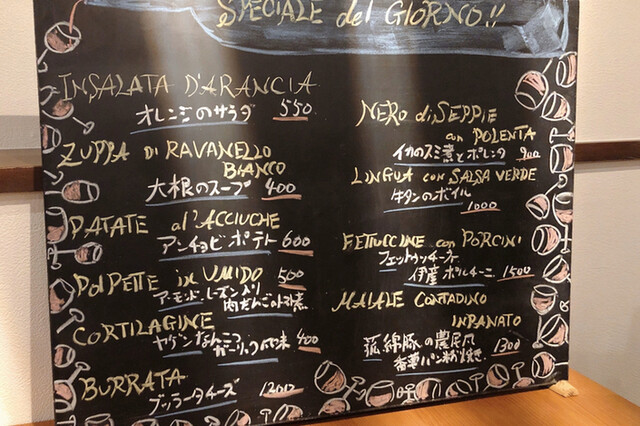 SPECIALE del GIORNO!!
INSALATA D'ARANCIA
オレンジのサラダ 550
ZUPPA DI RAVANELLO
BIANCO
大根のスープ 400
PATATE al'ACCIUCHE
アンチョビポテト 600
POLPETTE in UMIDO 500
アーモンド、レーズン入り
肉だんごのトマト煮
CORTILAGINE
ヤゲンなんこつ ガーリック風味 400
BURRATA
ブッラータチーズ 1200
NERO di SEPPIE
con POLENTA
イカのスミ煮とポレンタ 900
LINGUA con SALSA VERDE
牛タンのボイル
1000
FETTUCCINE con PORCINI
フェットゥッチーネ
伊産ポルチーニ 1500
MAIALE CONTADINO
INPANATO
狐綿豚の農民風 1300
香草パン粉焼き